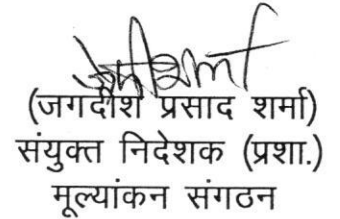 (जगदीश प्रसाद शर्मा)
संयुक्त निदेशक (प्रशा.)
मूल्यांकन संगठन